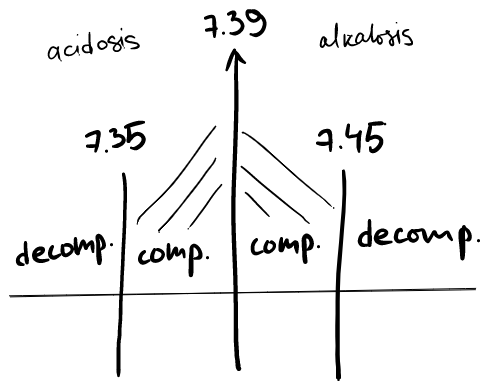 7.39
acidosis alkalosis
7.35 7.45
decomp. comp. comp. decomp.